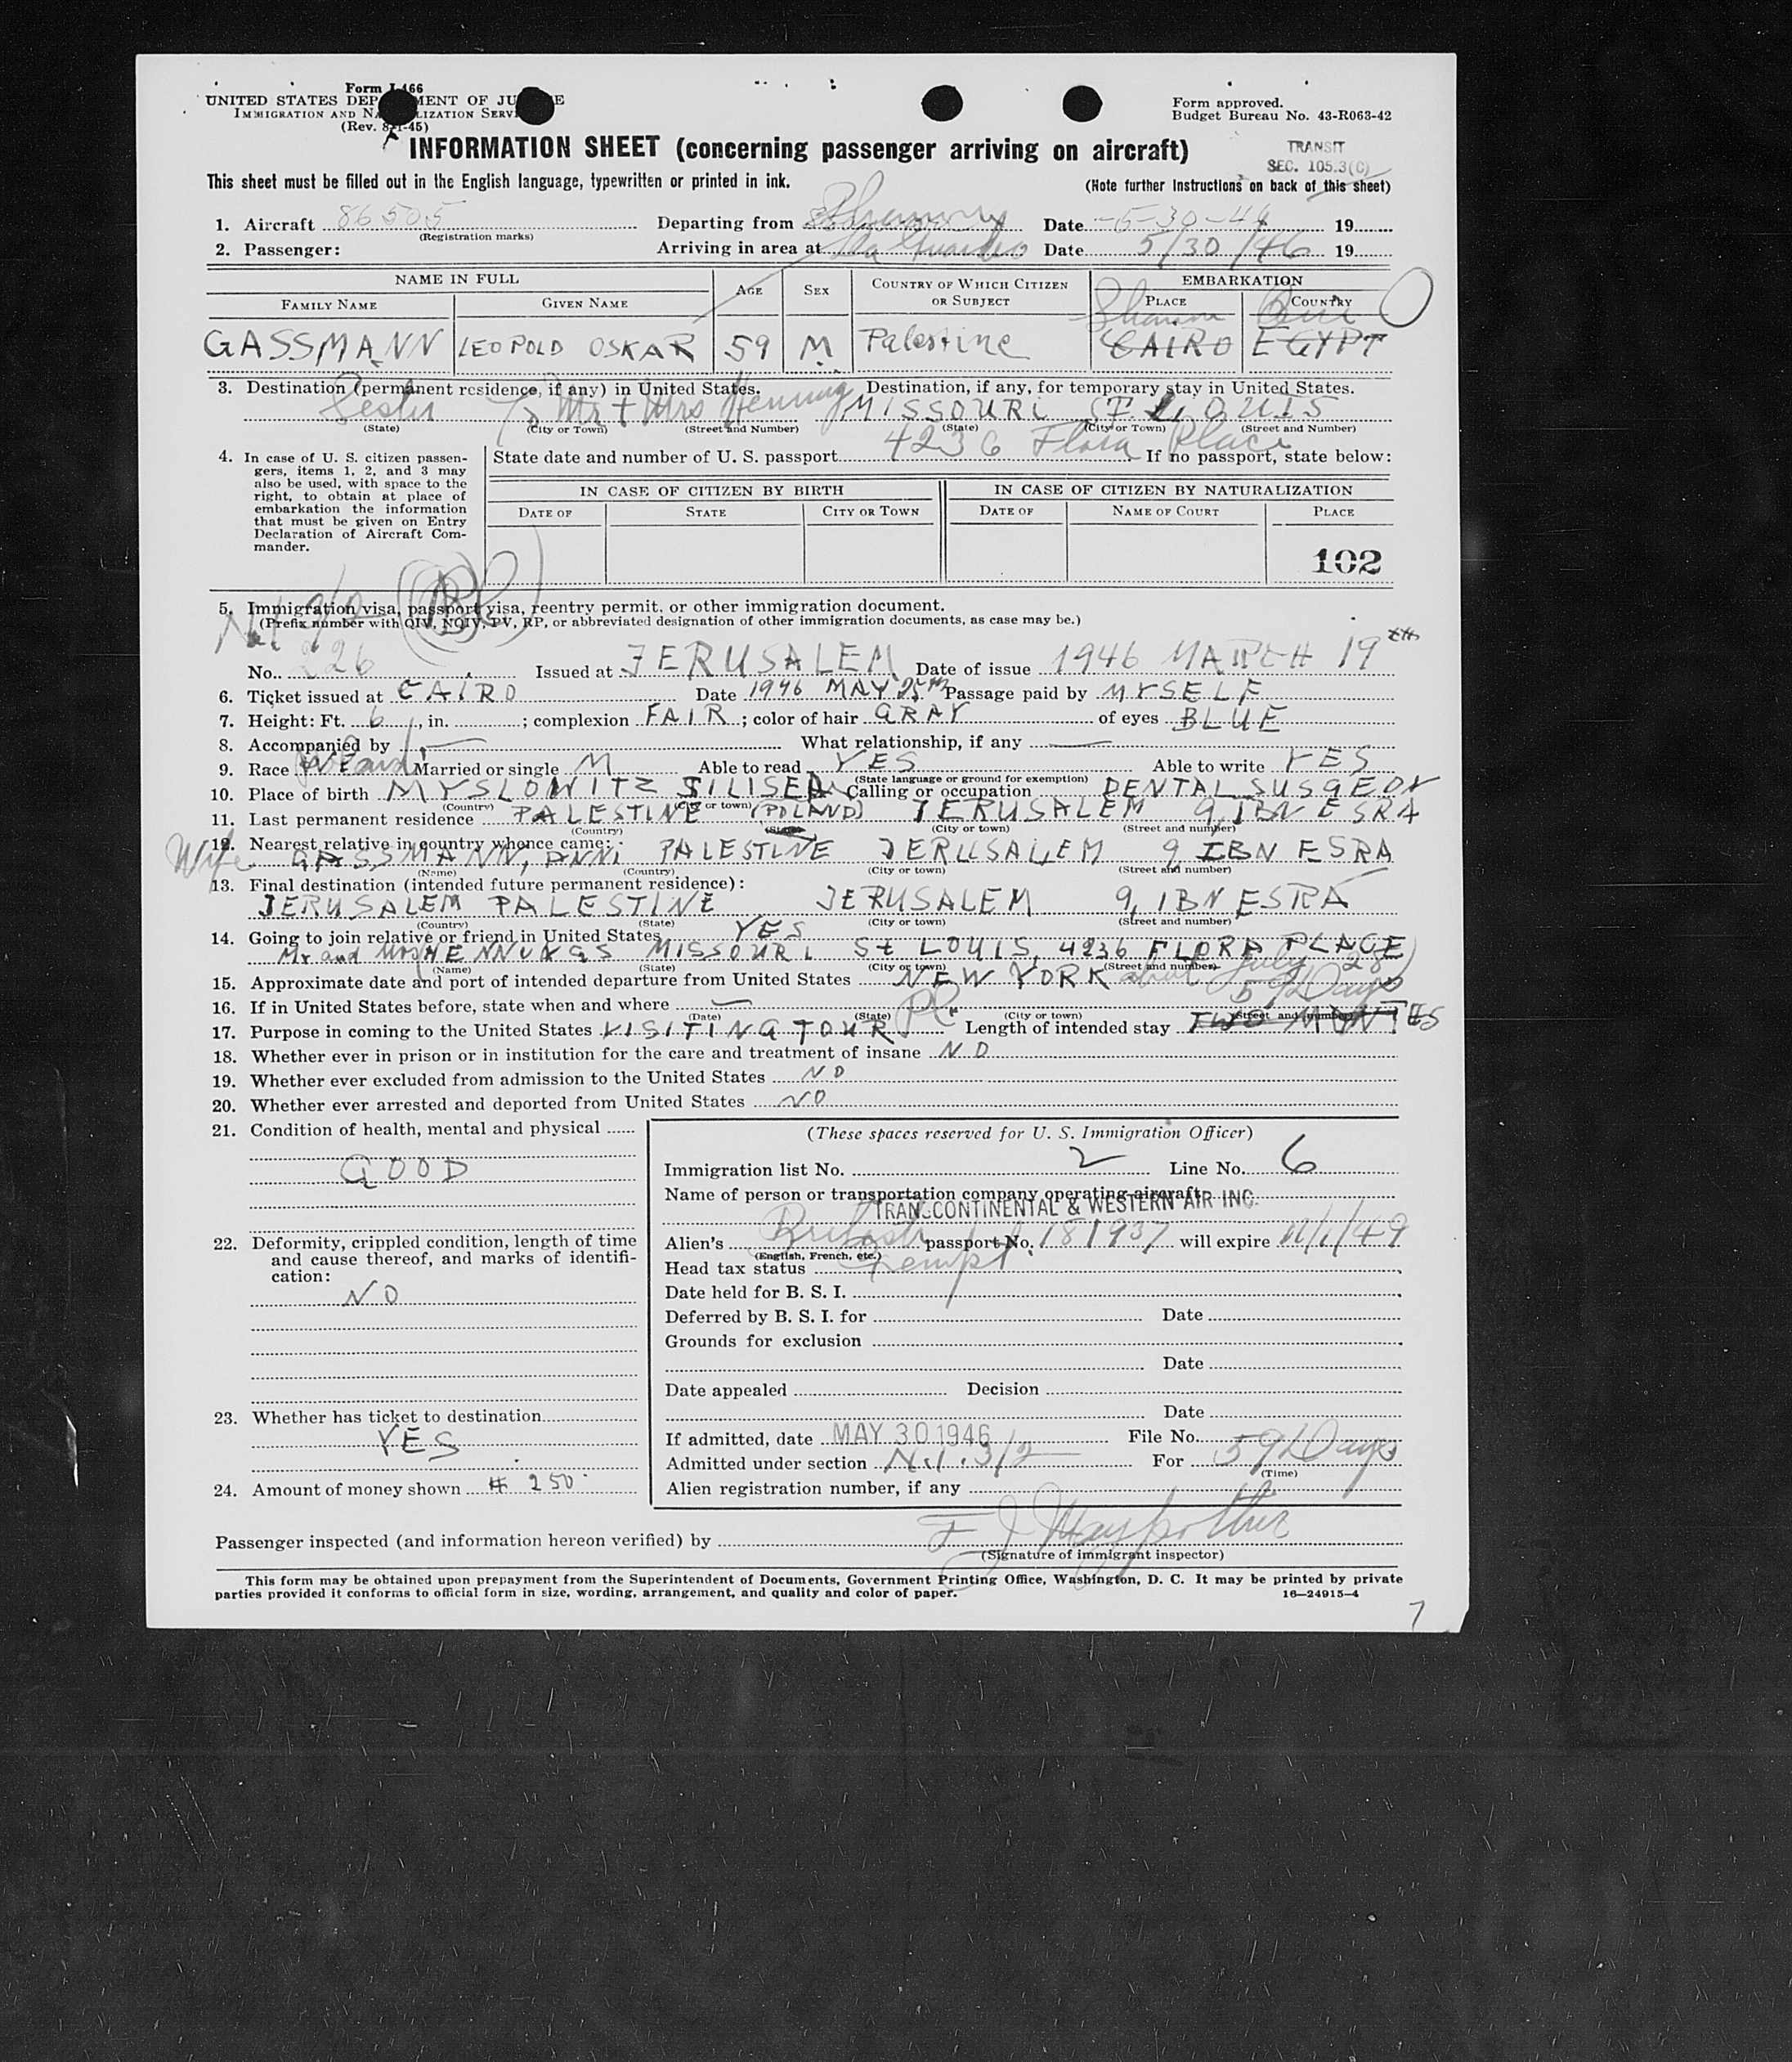 Form I-466
UNITED STATES DEPARTMENT OF JUSTICE
IMMIGRATION AND NATURALIZATION SERVICE
(Rev. 8-1-45)
Form approved.
Budget Bureau No. 43-R063-42
INFORMATION SHEET (concerning passenger arriving on aircraft)
TRANSIT
SEC. 105.3(C)
This sheet must be filled out in the English language, typewritten or printed in ink.
(Note further instructions on back of this sheet)
1. Aircraft 86505 Departing from Date 5-30-46 19
(Registration marks)
2. Passenger: Arriving in area at La Guardia Date 5/30/46 19
NAME IN FULL AGE SEX COUNTRY OF WHICH CITIZEN OR SUBJECT EMBARKATION
FAMILY NAME GIVEN NAME PLACE COUNTRY
GASSMANN LEOPOLD OSKAR 59 M Palestine CAIRO EGYPT
3. Destination (permanent residence, if any) in United States. Destination, if any, for temporary stay in United States.
To Mr + Mrs Henning MISSOURI ST. LOUIS
(State) (City or Town) (Street and Number) (State) (City or Town) (Street and Number)
4236 Flora Place
4. In case of U. S. citizen passengers, items 1, 2, and 3 may also be used, with space to the right, to obtain at place of embarkation the information that must be given on Entry Declaration of Aircraft Commander.
State date and number of U. S. passport If no passport, state below:
IN CASE OF CITIZEN BY BIRTH IN CASE OF CITIZEN BY NATURALIZATION
DATE OF STATE CITY OR TOWN DATE OF NAME OF COURT PLACE
102
5. Immigration visa, passport visa, reentry permit, or other immigration document.
(Prefix number with QIV, NQIV, PV, RP, or abbreviated designation of other immigration documents, as case may be.)
No. 226 Issued at JERUSALEM Date of issue 1946 MARCH 19th
6. Ticket issued at CAIRO Date 1946 MAY 25th Passage paid by MYSELF
7. Height: Ft. 6, in. ; complexion FAIR; color of hair GRAY of eyes BLUE
8. Accompanied by — What relationship, if any —
9. Race Married or single M Able to read YES Able to write YES
(State language or ground for exemption)
10. Place of birth MYSLOWITZ SILISEA Calling or occupation DENTAL SUSGEON
(Country) (City or town)
11. Last permanent residence PALESTINE (POLAND) JERUSALEM 9, IBN ESRA
(Country) (State) (City or town) (Street and number)
12. Nearest relative in country whence came:
Wife GASSMANN, ANNI PALESTINE JERUSALEM 9 IBN ESRA
(Name) (Country) (City or town) (Street and number)
13. Final destination (intended future permanent residence):
JERUSALEM PALESTINE JERUSALEM 9, IBN ESRA
(Country) (State) (City or town) (Street and number)
14. Going to join relative or friend in United States YES
Mr and Mrs HENNINGS MISSOURI St LOUIS, 4236 FLORA PLACE
(Name) (State) (City or town) (Street and number)
15. Approximate date and port of intended departure from United States NEW YORK about July 28
16. If in United States before, state when and where — 59 Days
(Date) (State) (City or town) (Street and number)
17. Purpose in coming to the United States VISITING TOUR Length of intended stay TWO MONTHS
18. Whether ever in prison or in institution for the care and treatment of insane NO
19. Whether ever excluded from admission to the United States NO
20. Whether ever arrested and deported from United States NO
21. Condition of health, mental and physical
GOOD
22. Deformity, crippled condition, length of time and cause thereof, and marks of identification:
NO
23. Whether has ticket to destination
YES
24. Amount of money shown # 250
(These spaces reserved for U. S. Immigration Officer)
Immigration list No. 2 Line No. 6
Name of person or transportation company operating aircraft
TRANSCONTINENTAL & WESTERN AIR INC.
Alien's British passport No. 181937 will expire 11/1/49
(English, French, etc.)
Head tax status Exempt
Date held for B. S. I.
Deferred by B. S. I. for Date
Grounds for exclusion
Date
Date appealed Decision
Date
If admitted, date MAY 30 1946 File No.
Admitted under section N.I. 3/2 For 59 Days
(Time)
Alien registration number, if any
Passenger inspected (and information hereon verified) by
(Signature of immigrant inspector)
This form may be obtained upon prepayment from the Superintendent of Documents, Government Printing Office, Washington, D. C. It may be printed by private
parties provided it conforms to official form in size, wording, arrangement, and quality and color of paper.
16—24915-4
7